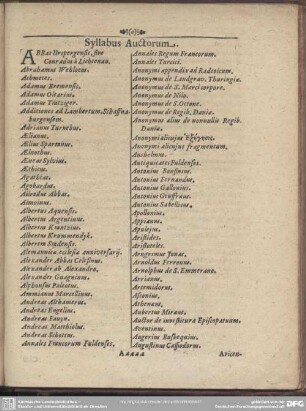 Syllabus Auctorum.
ABBas Urspergensis, sive
Conradus à Lichtenau.
Abrahamus Webbocus.
Achmetes.
Adamus Bremensis.
Adamus Olearius.
Adamus Tratziger.
Additiones ad Lambertum Schaffnaburgensem.
Adrianus Turnebus.
Ælianus.
Ælius Spartianus.
Ælnothus.
Æneas Sylvius.
Æthicus.
Agathias.
Agobardus.
Ailredus Abbas.
Aimoinus.
Albertus Aquensis.
Albertus Argentinens.
Albertus Krantzius.
Albertus Krummendyk.
Albertus Stadensis.
Alexander Abbas Celesinus.
Alexander ab Alexandro.
Alexander Guagninus.
Alphonsus
Ammianus Marcellinus.
Andreas Althamerus.
Andreas Engelius.
Andreas Favyn.
Andreas Matthiolus.
Andreas Schottus.
Annales Francorum Fuldenses.
Annales Regum Francorum.
Annales Turcici.
Anonymus appendix ad Radevicum.
Anonymus de Landgrav. Thuringia.
Anonymus de S. Marci corpore.
Anonymus de Nilo.
Anonymus de S. Ottone.
Anonymus de Regib. Dania.
Anonymus alius de nonnullis Regib.
Dania.
Anonymi alicujus
Anonymi alicujus fragmentum,
Anschelmus.
Antiquitates Fuldenses.
Antonius Bonfinius.
Antonius Fernandus.
Antonius Gallonius.
Antonius
Antonius Sabellicus.
Apollonius.
Appianus.
Apulejus.
Aristides.
Aristoteles.
Arngrimus Jonas.
Arnoldus Ferronus.
Arnolphus de S. Emmerano.
Arrianus.
Artemidorus.
Athenæus.
Aubertus Miræus.
Auctor de investitura Episcopatuum.
Aventinus.
Augerius Busbequius.